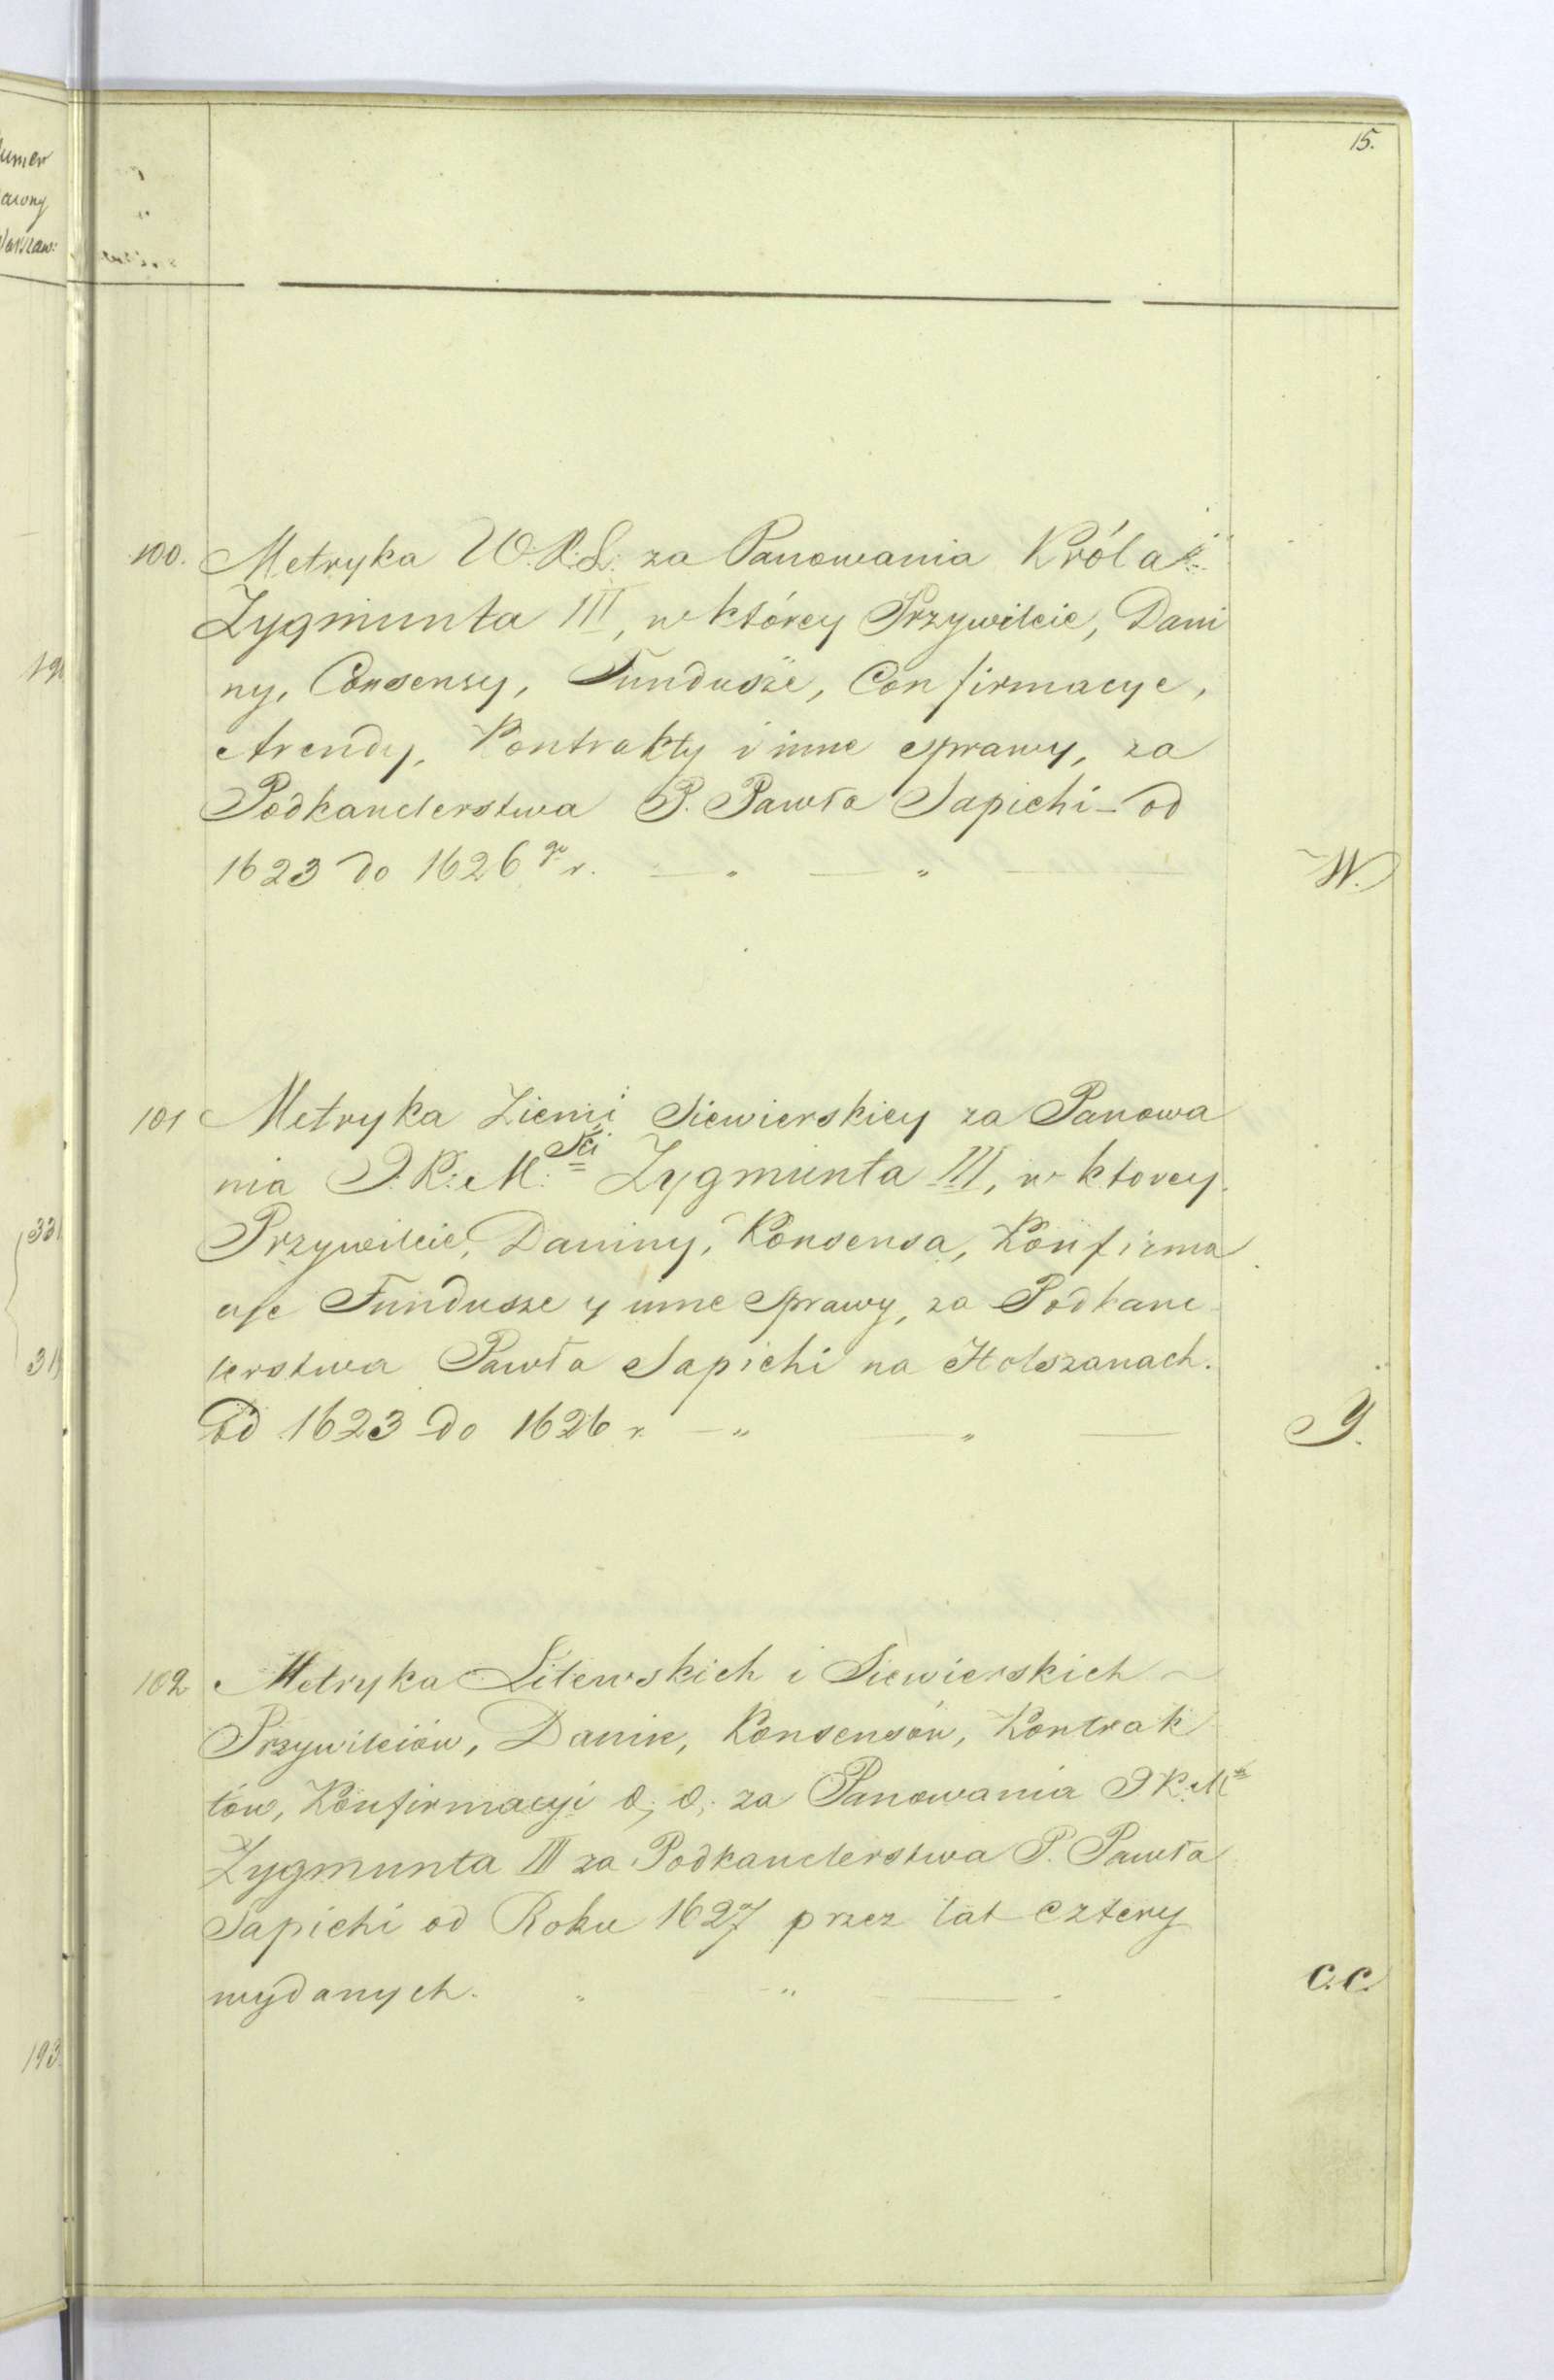 15.
100. Metryka W.X.L. za Panowania Króla
Zygmunta III, w którey Przywileie, Dani
ny, Consensy, Fundusze, Confirmacye,
Arendy, Kontrakty i inne sprawy, za
Podkanclerstwa P. Pawła Sapiehi - od
1623 do 1626 go r. — " — " —
W.
101 Metryka Ziemi Siewierskiey za Panowa
nia J.K.M.Sci Zygmunta III, w ktorey
Przywileie, Daniny, Konsensa, Konfirma
cye Fundusze y inne sprawy, za Podkanc
lerstwa Pawła Sapiehi na Holszanach.
Od 1623 do 1626 r. — " " —
Y.
102 Metryka Litewskich i Siewierskich
Przywileiów, Danin, Konsensów, Kontrak
tów, Konfirmacyi &, &, za Panowania J.K.M
Zygmunta III za Podkanclerstwa P. Pawła
Sapiehi od Roku 1627 przez lat cztery
wydanych. " - " —
C.C.